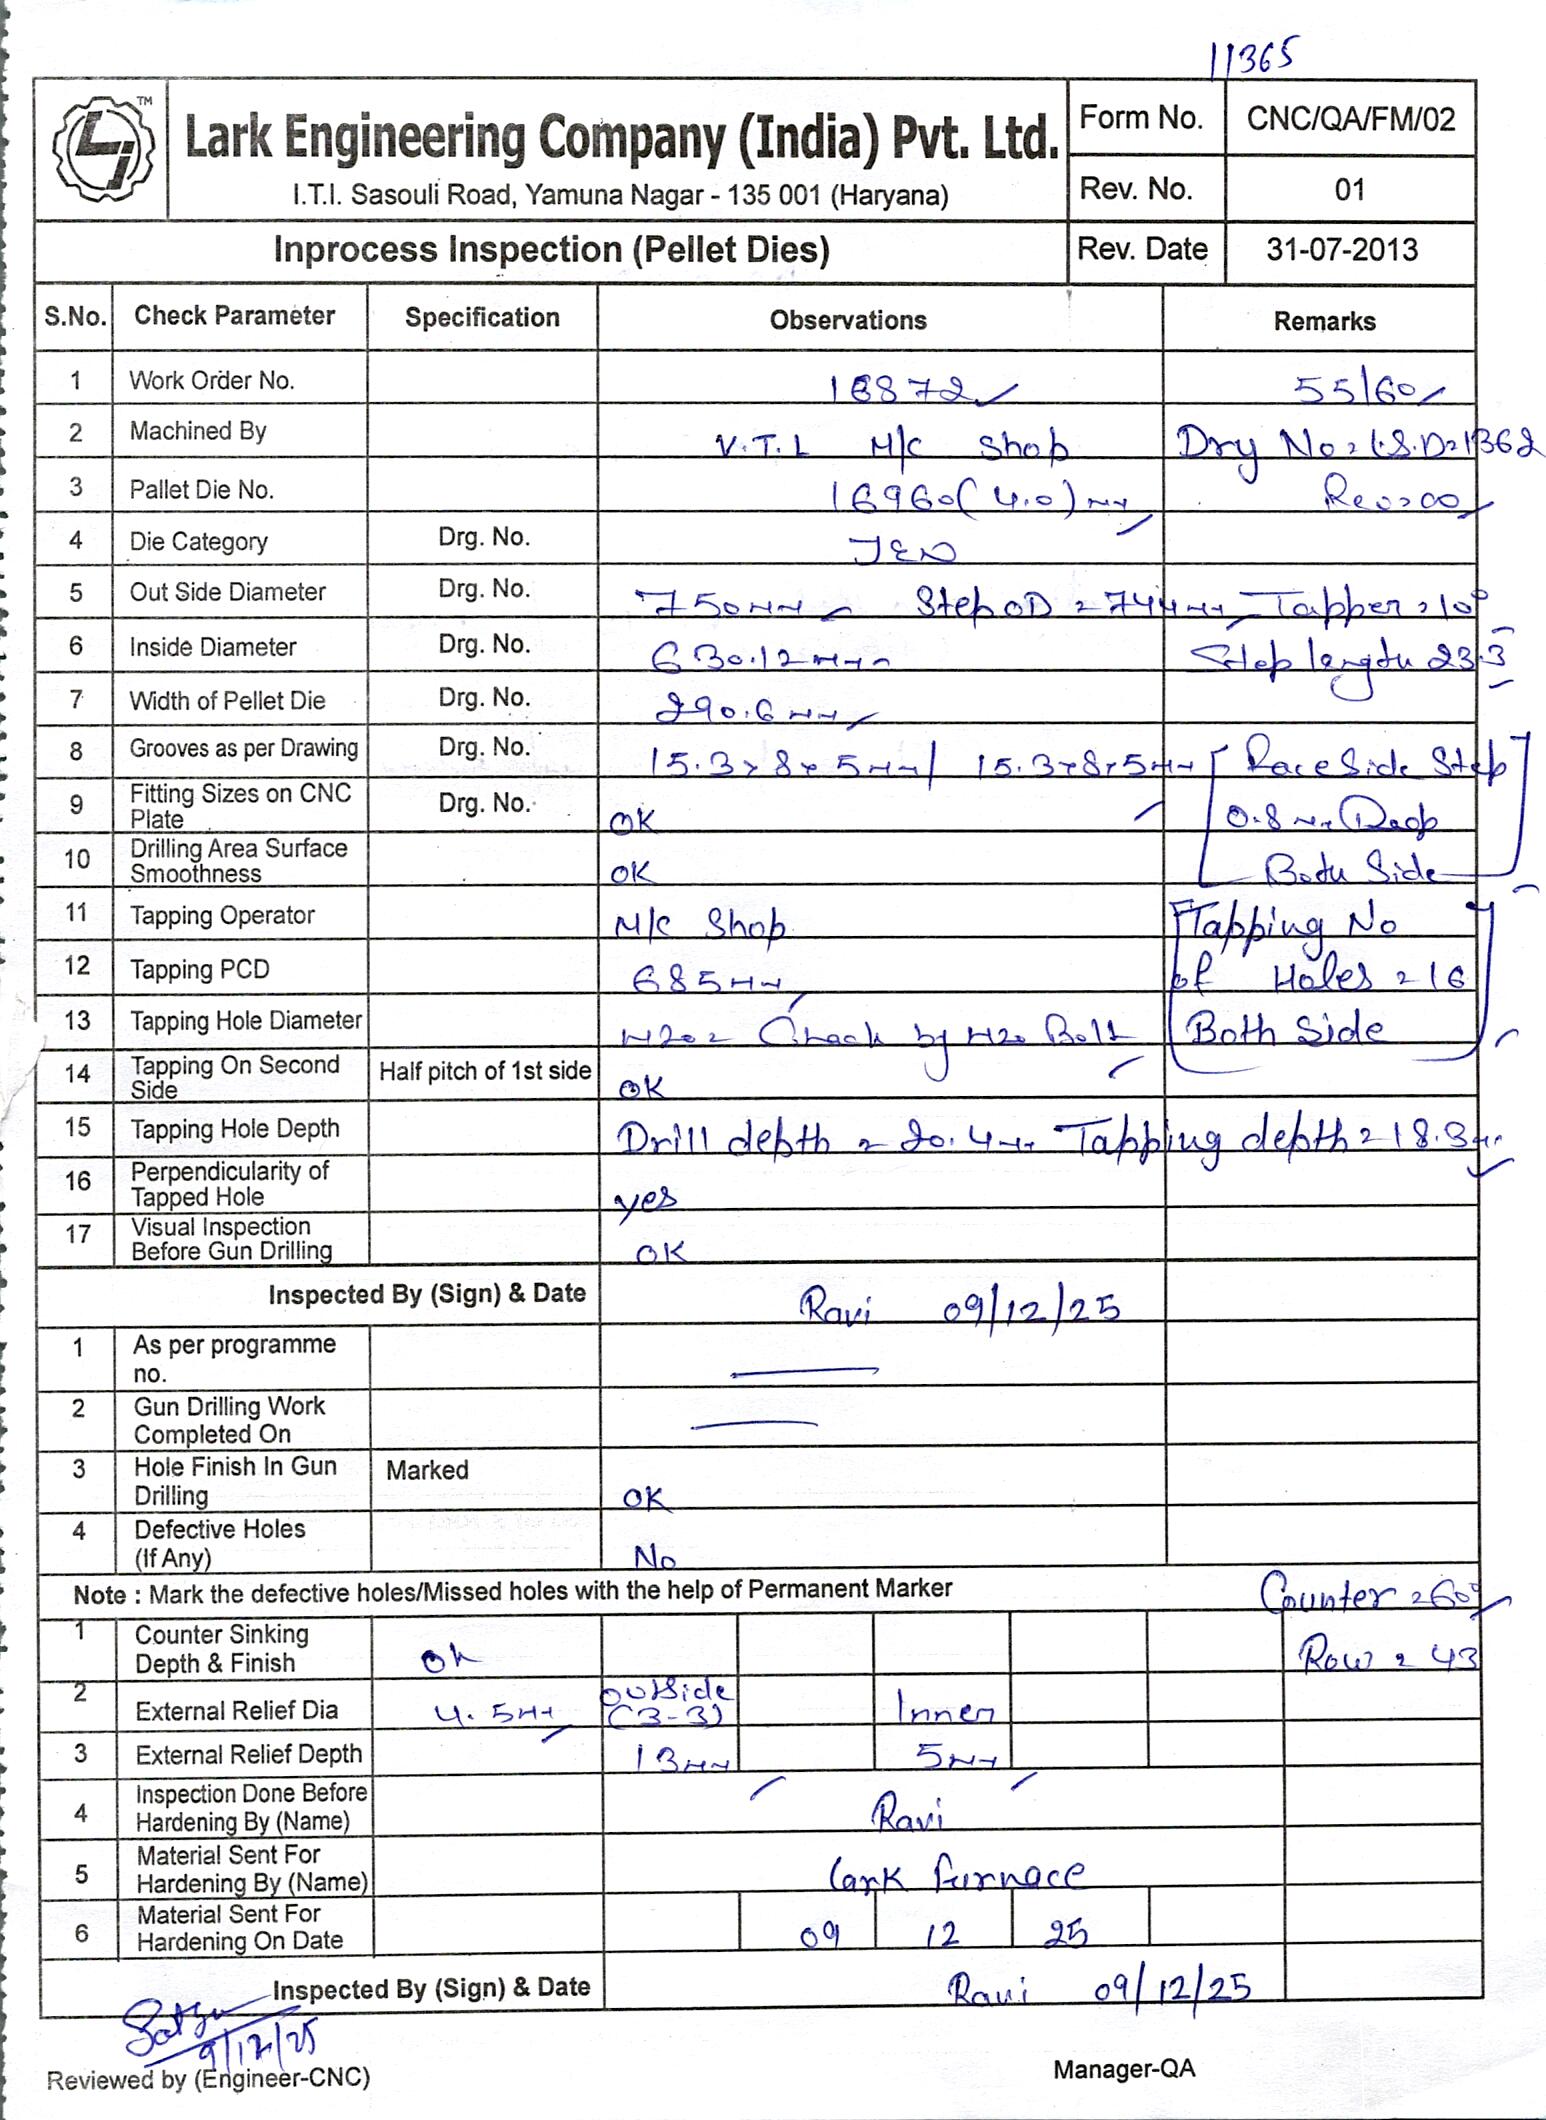 11365
TM
Lark Engineering Company (India) Pvt. Ltd.
I.T.I. Sasouli Road, Yamuna Nagar - 135 001 (Haryana)
Form No. CNC/QA/FM/02
Rev. No. 01
Inprocess Inspection (Pellet Dies) Rev. Date 31-07-2013
S.No. Check Parameter Specification Observations Remarks
1 Work Order No. 16872 55/60
2 Machined By V.T.L M/C Shop Dry No = L.S.D=1362
3 Pallet Die No. 16960(4.0)mm Rev=00
4 Die Category Drg. No.
5 Out Side Diameter Drg. No. 750mm Step OD = 744mm Tapper = 10°
6 Inside Diameter Drg. No. 630.12mm Step length 23.3
7 Width of Pellet Die Drg. No. 290.6mm
8 Grooves as per Drawing Drg. No. 15.3x8x5mm/ 15.3x8x5mm [Race Side Step
9 Fitting Sizes on CNC Plate Drg. No. OK 0.8mm Deep
10 Drilling Area Surface Smoothness OK Both Side]
11 Tapping Operator M/C Shop [Tapping No
12 Tapping PCD 685mm of Holes = 16
13 Tapping Hole Diameter M20 = Check by M20 Bolt Both Side]
14 Tapping On Second Side Half pitch of 1st side OK
15 Tapping Hole Depth Drill depth = 20.4mm Tapping depth = 18.3mm
16 Perpendicularity of Tapped Hole yes
17 Visual Inspection Before Gun Drilling OK
Inspected By (Sign) & Date Ravi 09/12/25
1 As per programme no.
2 Gun Drilling Work Completed On
3 Hole Finish In Gun Drilling Marked OK
4 Defective Holes (If Any) No
Note : Mark the defective holes/Missed holes with the help of Permanent Marker Counter = 60°
1 Counter Sinking Depth & Finish Ok Row = 43
2 External Relief Dia 4.5mm outside (3-3) Inner
3 External Relief Depth 13mm 5mm
4 Inspection Done Before Hardening By (Name) Ravi
5 Material Sent For Hardening By (Name) Lark furnace
6 Material Sent For Hardening On Date 09 12 25
Inspected By (Sign) & Date Ravi 09/12/25
9/12/25
Reviewed by (Engineer-CNC) Manager-QA